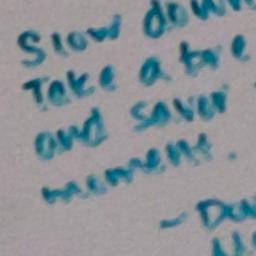 Slow down
Take a bre
and saver
mement.
- Da